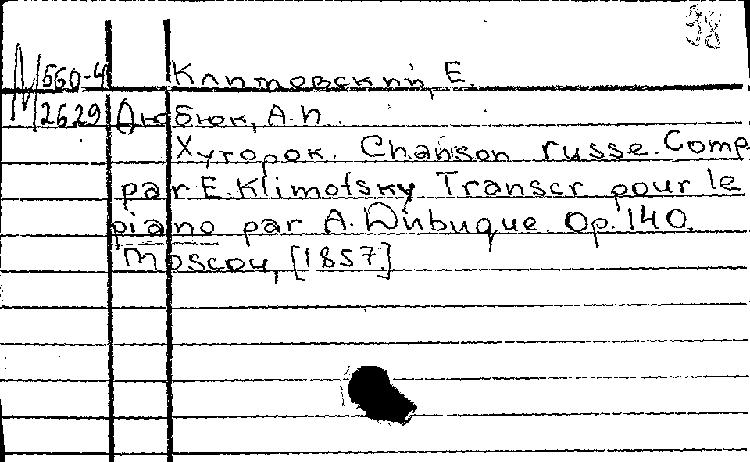 38
М 560-4 Климовский, Е.
2629 Дюбюк, А.И.
Хуторок. Chanson russe. Comp
par E. Klimofsky Transcr pour le
piano par A. Dubuque Op. 140.
Moscou, [1857.]